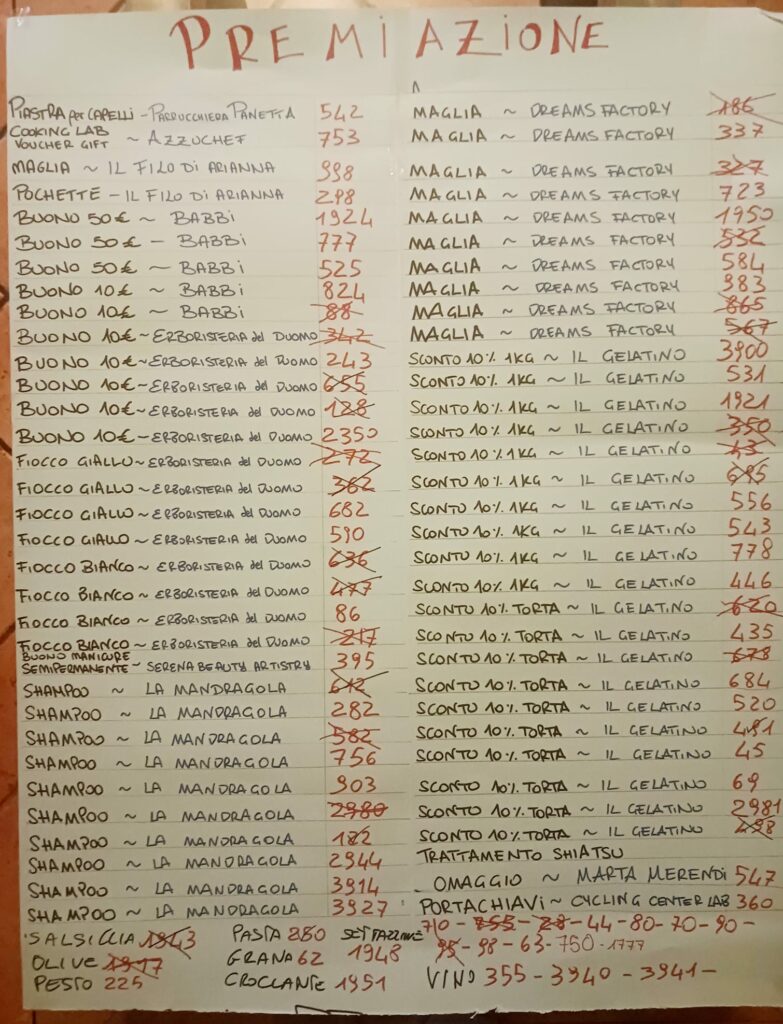 PREMIAZIONE
PIASTRA per CAPELLI - PARRUCCHIERA PANETTA 542
COOKING LAB
VOUCHER GIFT ~ AZZUCHEF 753
MAGLIA ~ IL FILO DI ARIANNA 998
POCHETTE - IL FILO DI ARIANNA 298
BUONO 50€ ~ BABBI 1924
BUONO 50€ - BABBI 777
BUONO 50€ ~ BABBI 525
BUONO 10€ ~ BABBI 824
BUONO 10€ ~ BABBI 88
BUONO 10€ ~ ERBORISTERIA del DUOMO 342
BUONO 10€ ~ ERBORISTERIA del DUOMO 243
BUONO 10€ ~ ERBORISTERIA del DUOMO 655
BUONO 10€ ~ ERBORISTERIA del DUOMO 128
BUONO 10€ ~ ERBORISTERIA del DUOMO 2350
FIOCCO GIALLO ~ ERBORISTERIA del DUOMO 272
FIOCCO GIALLO ~ ERBORISTERIA del DUOMO 362
FIOCCO GIALLO ~ ERBORISTERIA del DUOMO 682
FIOCCO GIALLO ~ ERBORISTERIA del DUOMO 590
FIOCCO BIANCO ~ ERBORISTERIA del DUOMO 636
FIOCCO BIANCO ~ ERBORISTERIA del DUOMO 477
FIOCCO BIANCO ~ ERBORISTERIA del DUOMO 86
FIOCCO BIANCO ~ ERBORISTERIA del DUOMO 217
BUONO MANICURE
SEMIPERMANENTE ~ SERENA BEAUTY ARTISTRY 395
SHAMPOO ~ LA MANDRAGOLA 612
SHAMPOO ~ LA MANDRAGOLA 282
SHAMPOO ~ LA MANDRAGOLA 582
SHAMPOO ~ LA MANDRAGOLA 756
SHAMPOO ~ LA MANDRAGOLA 903
SHAMPOO ~ LA MANDRAGOLA 2980
SHAMPOO ~ LA MANDRAGOLA 182
SHAMPOO ~ LA MANDRAGOLA 2944
SHAMPOO ~ LA MANDRAGOLA 3914
SHAMPOO ~ LA MANDRAGOLA 3927
MAGLIA ~ DREAMS FACTORY 186
MAGLIA ~ DREAMS FACTORY 337
MAGLIA ~ DREAMS FACTORY 327
MAGLIA ~ DREAMS FACTORY 723
MAGLIA ~ DREAMS FACTORY 1950
MAGLIA ~ DREAMS FACTORY 532
MAGLIA ~ DREAMS FACTORY 584
MAGLIA ~ DREAMS FACTORY 983
MAGLIA ~ DREAMS FACTORY 865
MAGLIA ~ DREAMS FACTORY 567
SCONTO 10% 1KG ~ IL GELATINO 3900
SCONTO 10% 1KG ~ IL GELATINO 531
SCONTO 10% 1KG ~ IL GELATINO 1921
SCONTO 10% 1KG ~ IL GELATINO 350
SCONTO 10% 1KG ~ IL GELATINO 43
SCONTO 10% 1KG ~ IL GELATINO 695
SCONTO 10% 1KG ~ IL GELATINO 556
SCONTO 10% 1KG ~ IL GELATINO 543
SCONTO 10% 1KG ~ IL GELATINO 778
SCONTO 10% 1KG ~ IL GELATINO 446
SCONTO 10% TORTA ~ IL GELATINO 620
SCONTO 10% TORTA ~ IL GELATINO 435
SCONTO 10% TORTA ~ IL GELATINO 678
SCONTO 10% TORTA ~ IL GELATINO 684
SCONTO 10% TORTA ~ IL GELATINO 520
SCONTO 10% TORTA ~ IL GELATINO 491
SCONTO 10% TORTA ~ IL GELATINO 45
SCONTO 10% TORTA ~ IL GELATINO 69
SCONTO 10% TORTA ~ IL GELATINO 2981
SCONTO 10% TORTA ~ IL GELATINO 498
TRATTAMENTO SHIATSU
OMAGGIO ~ MARTA MERENDI 547
PORTACHIAVI ~ CYCLING CENTER LAB 360
SALSICCIA 1943
OLIVE 1917
PESTO 225
PASTA 280
GRANA 62
CROCCANTE 1951
710 - 255 - 28 - 44 - 80 - 70 - 90 -
1948 95 - 98 - 63 - 750 - 1777
VINO 355 - 3940 - 3941 -